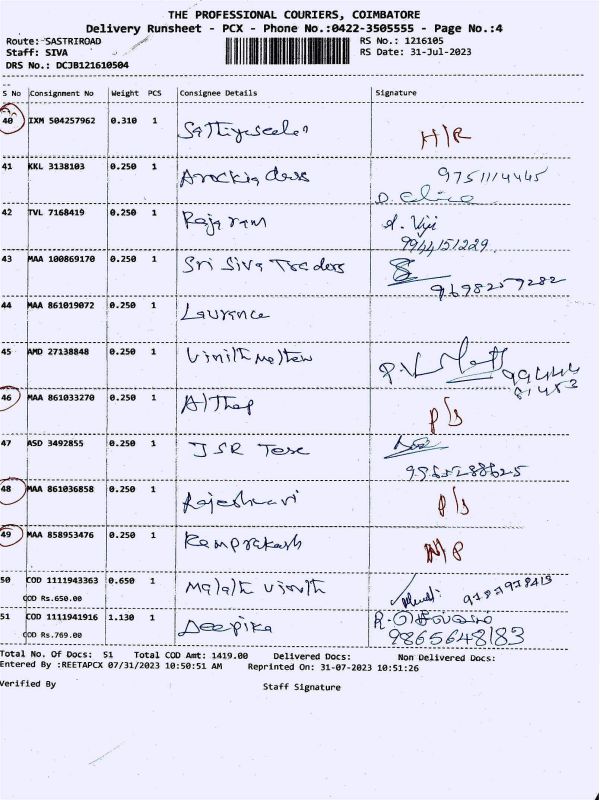 THE PROFESSIONAL COURIERS, COIMBATORE
Delivery Runsheet - PCX - Phone No.:0422-3505555 - Page No.:4
Route: SASTRIROAD RS No.: 1216105
Staff: SIVA RS Date: 31-Jul-2023
DRS No.: DCJB121610504
S No Consignment No Weight PCS Consignee Details Signature
40 IXM 504257962 0.310 1 H/R
41 KKL 3138103 0.250 1 Arockia doss 9751114445
D.
42 TVL 7168419 0.250 1 Rajaram A. Viji
9944151229
43 MAA 100869170 0.250 1 Sri Siva Traders
9698259282
44 MAA 861019072 0.250 1 Laurence
45 AMD 27138848 0.250 1
46 MAA 861033270 0.250 1 Althap P/S
47 ASD 3492855 0.250 1 JSR
48 MAA 861036858 0.250 1 Rajeshwari P/S
49 MAA 858953476 0.250 1 Ramprakash N/P
50 COD 1111943363 0.650 1 Malath Vinith
COD Rs.650.00
51 COD 1111941916 1.130 1 Deepika R.
COD Rs.769.00 9865648183
Total No. Of Docs: 51 Total COD Amt: 1419.00 Delivered Docs: Non Delivered Docs:
Entered By :REETAPCX 07/31/2023 10:50:51 AM Reprinted On: 31-07-2023 10:51:26
Verified By Staff Signature